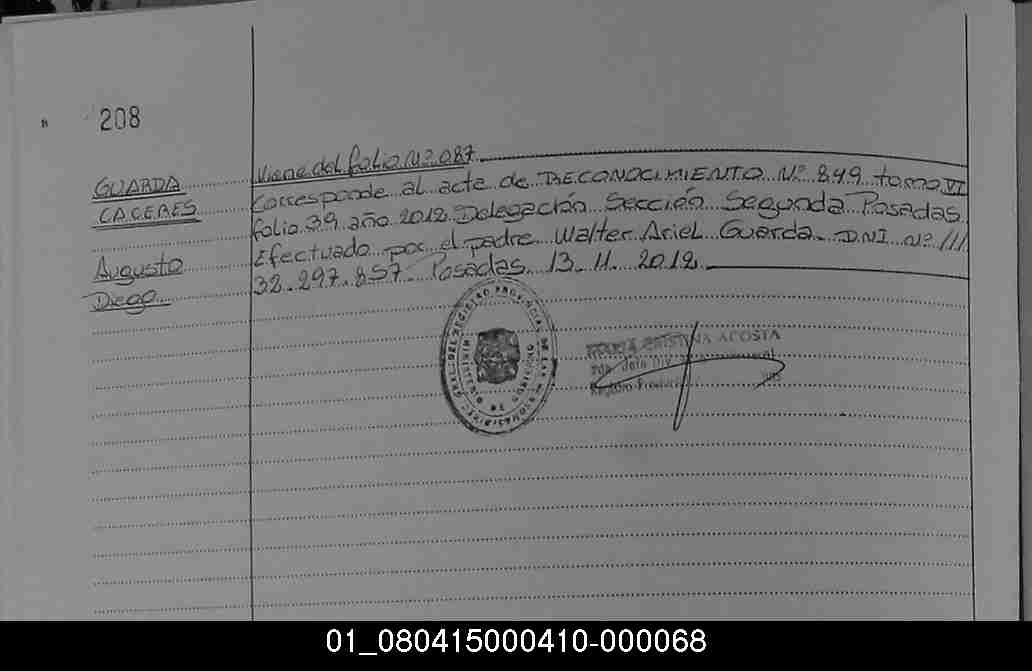 208
GUARDA
CACERES
Augusto
Diego
Viene del folio Nº 087
Corresponde al acte de RECONOCIMIENTO Nº 849 tomo VI
folio 39 año 2012 Delegación Sección Segunda Posadas
Efectuado por el padre Walter Ariel Guarda DNI Nº ///
32.297.857 Posadas 13.11.2012
CRISTINA ACOSTA
01_080415000410-000068